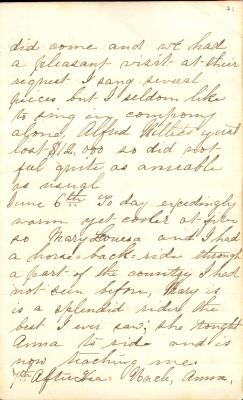 31
did come and we had
a pleasant visit at their
request I sang several
pieces but I seldom like
to sing in company
alone, Alfred Willis just
lost $12,000 so did not
feel quite as amiable
as usual
June 6th To day exceedingly
warm yet cooler at five
so Mary Louesa and I had
a horse-back-ride through
a part of the country I had
not seen before, Mary is
is a splendid rider the
best I ever saw; she tought
Anna to ride and is
now teaching me.
7th After tea Uncle, Anna,